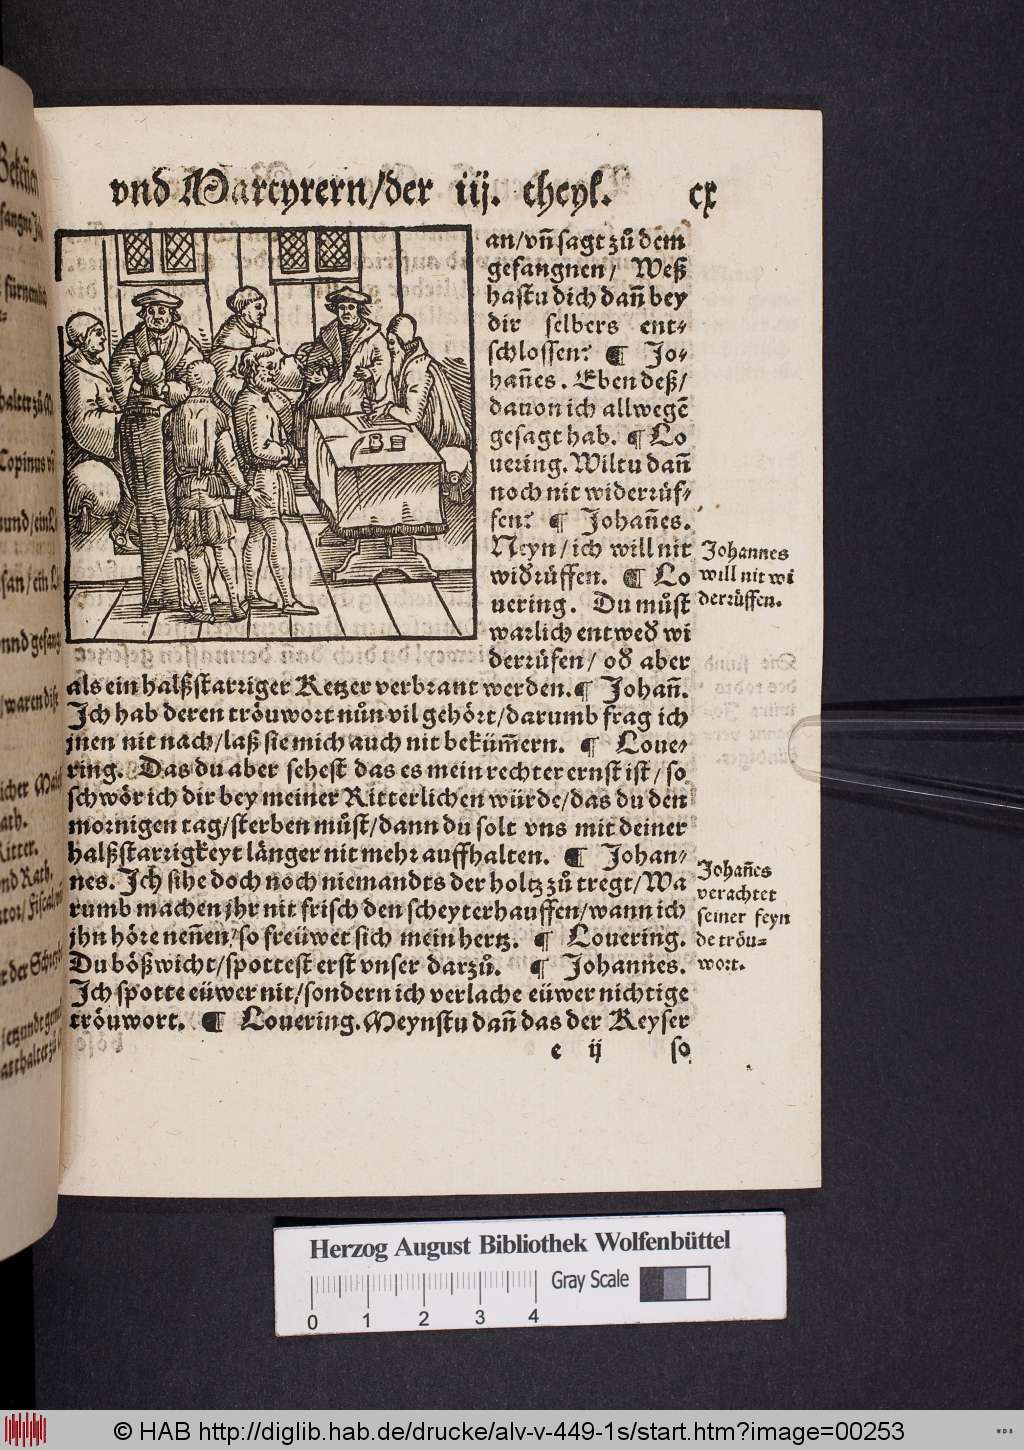 vnd Martyrern/der iij. theyl. cx
an/vñ sagt zů dem
gefangnen/ Weß
hastu dich dañ bey
dir selbers ent⸗
schlossen? ¶ Jo⸗
hañes. Eben deß/
dauon ich allwegē
gesagt hab. ¶ Lo
uering. Wiltu dañ
noch nit widerrüf⸗
fen? ¶ Johañes.
Neyn/ich will nit
widꝛ̃üffen. ¶ Lo
uering. Du můst
warlich entwed̃ wi
derrüfen/ od̃ aber
als ein halßstarriger Ketzer verbrant werden.¶ Johañ.
Jch hab deren tröuwort nůn vil gehört/darumb frag ich
jnen nit nach/laß sie mich auch nit beküm̃ern. ¶ Loue⸗
ring. Das du aber sehest das es mein rechter ernst ist/so
schwör ich dir bey meiner Ritterlichen würde/das du den
mornigen tag/sterben můst/dann du solt vns mit deiner
halßstarrigkeyt länger nit mehr auffhalten. ¶ Johan⸗
nes. Jch sihe doch noch niemandts der holtz zů tregt/Wa
rumb machen jhr nit frisch den scheyterhauffen/wann ich
jhn höre neñen/so freüwet sich mein hertz. ¶ Louering.
Du bößwicht/spottest erst vnser darzů. ¶ Johannes.
Jch spotte eüwer nit/sondern ich verlache eüwer nichtige
tröuwort. ¶ Louering.Meynstu dañ das der Keyser
e ij so
Johannes
will nit wi
derrüffen.
Johañes
verachtet
seiner feyn
de tröu⸗
wort.
Herzog August Bibliothek Wolfenbüttel
Gray Scale
0 1 2 3 4
© HAB http://diglib.hab.de/drucke/alv-v-449-1s/start.htm?image=00253